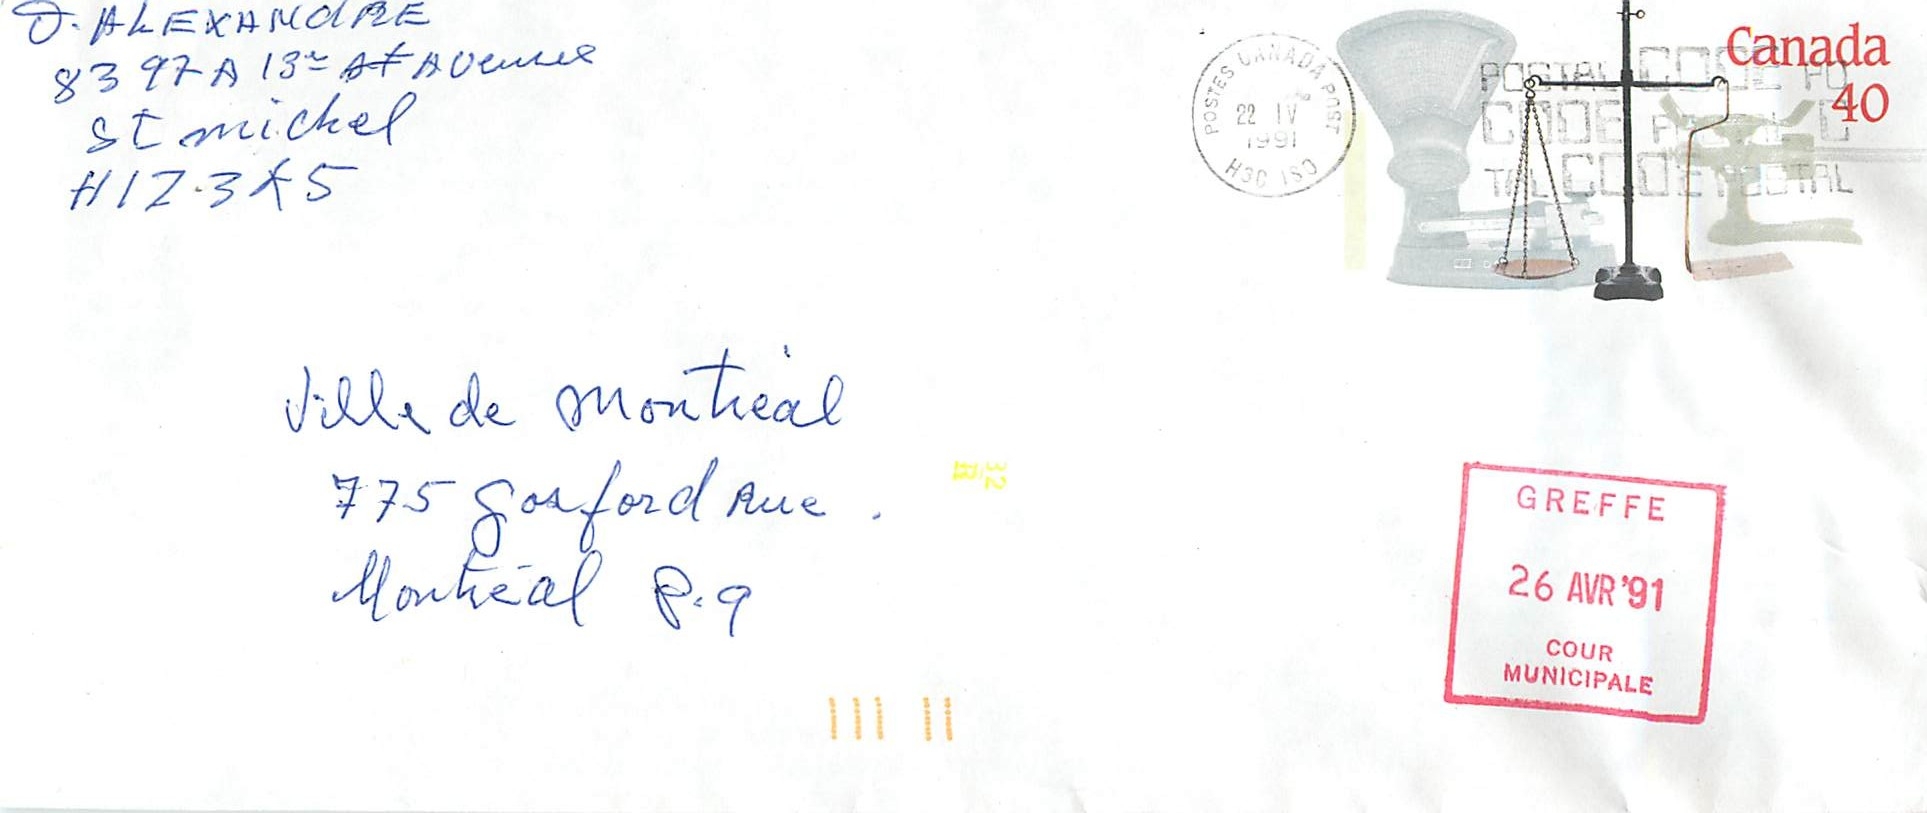 J. ALEXANDRE
8397A 13e Avenue
St michel
H1Z.3K5
POSTES CANADA POST
22 IV
1991
H3C 1S0
Canada
40
POSTAL CODE PO
CODE POSTAL C
TAL CODE POSTAL
Ville de Montréal
775 gosford Rue.
Montréal P.q
32
GREFFE
26 AVR '91
COUR
MUNICIPALE